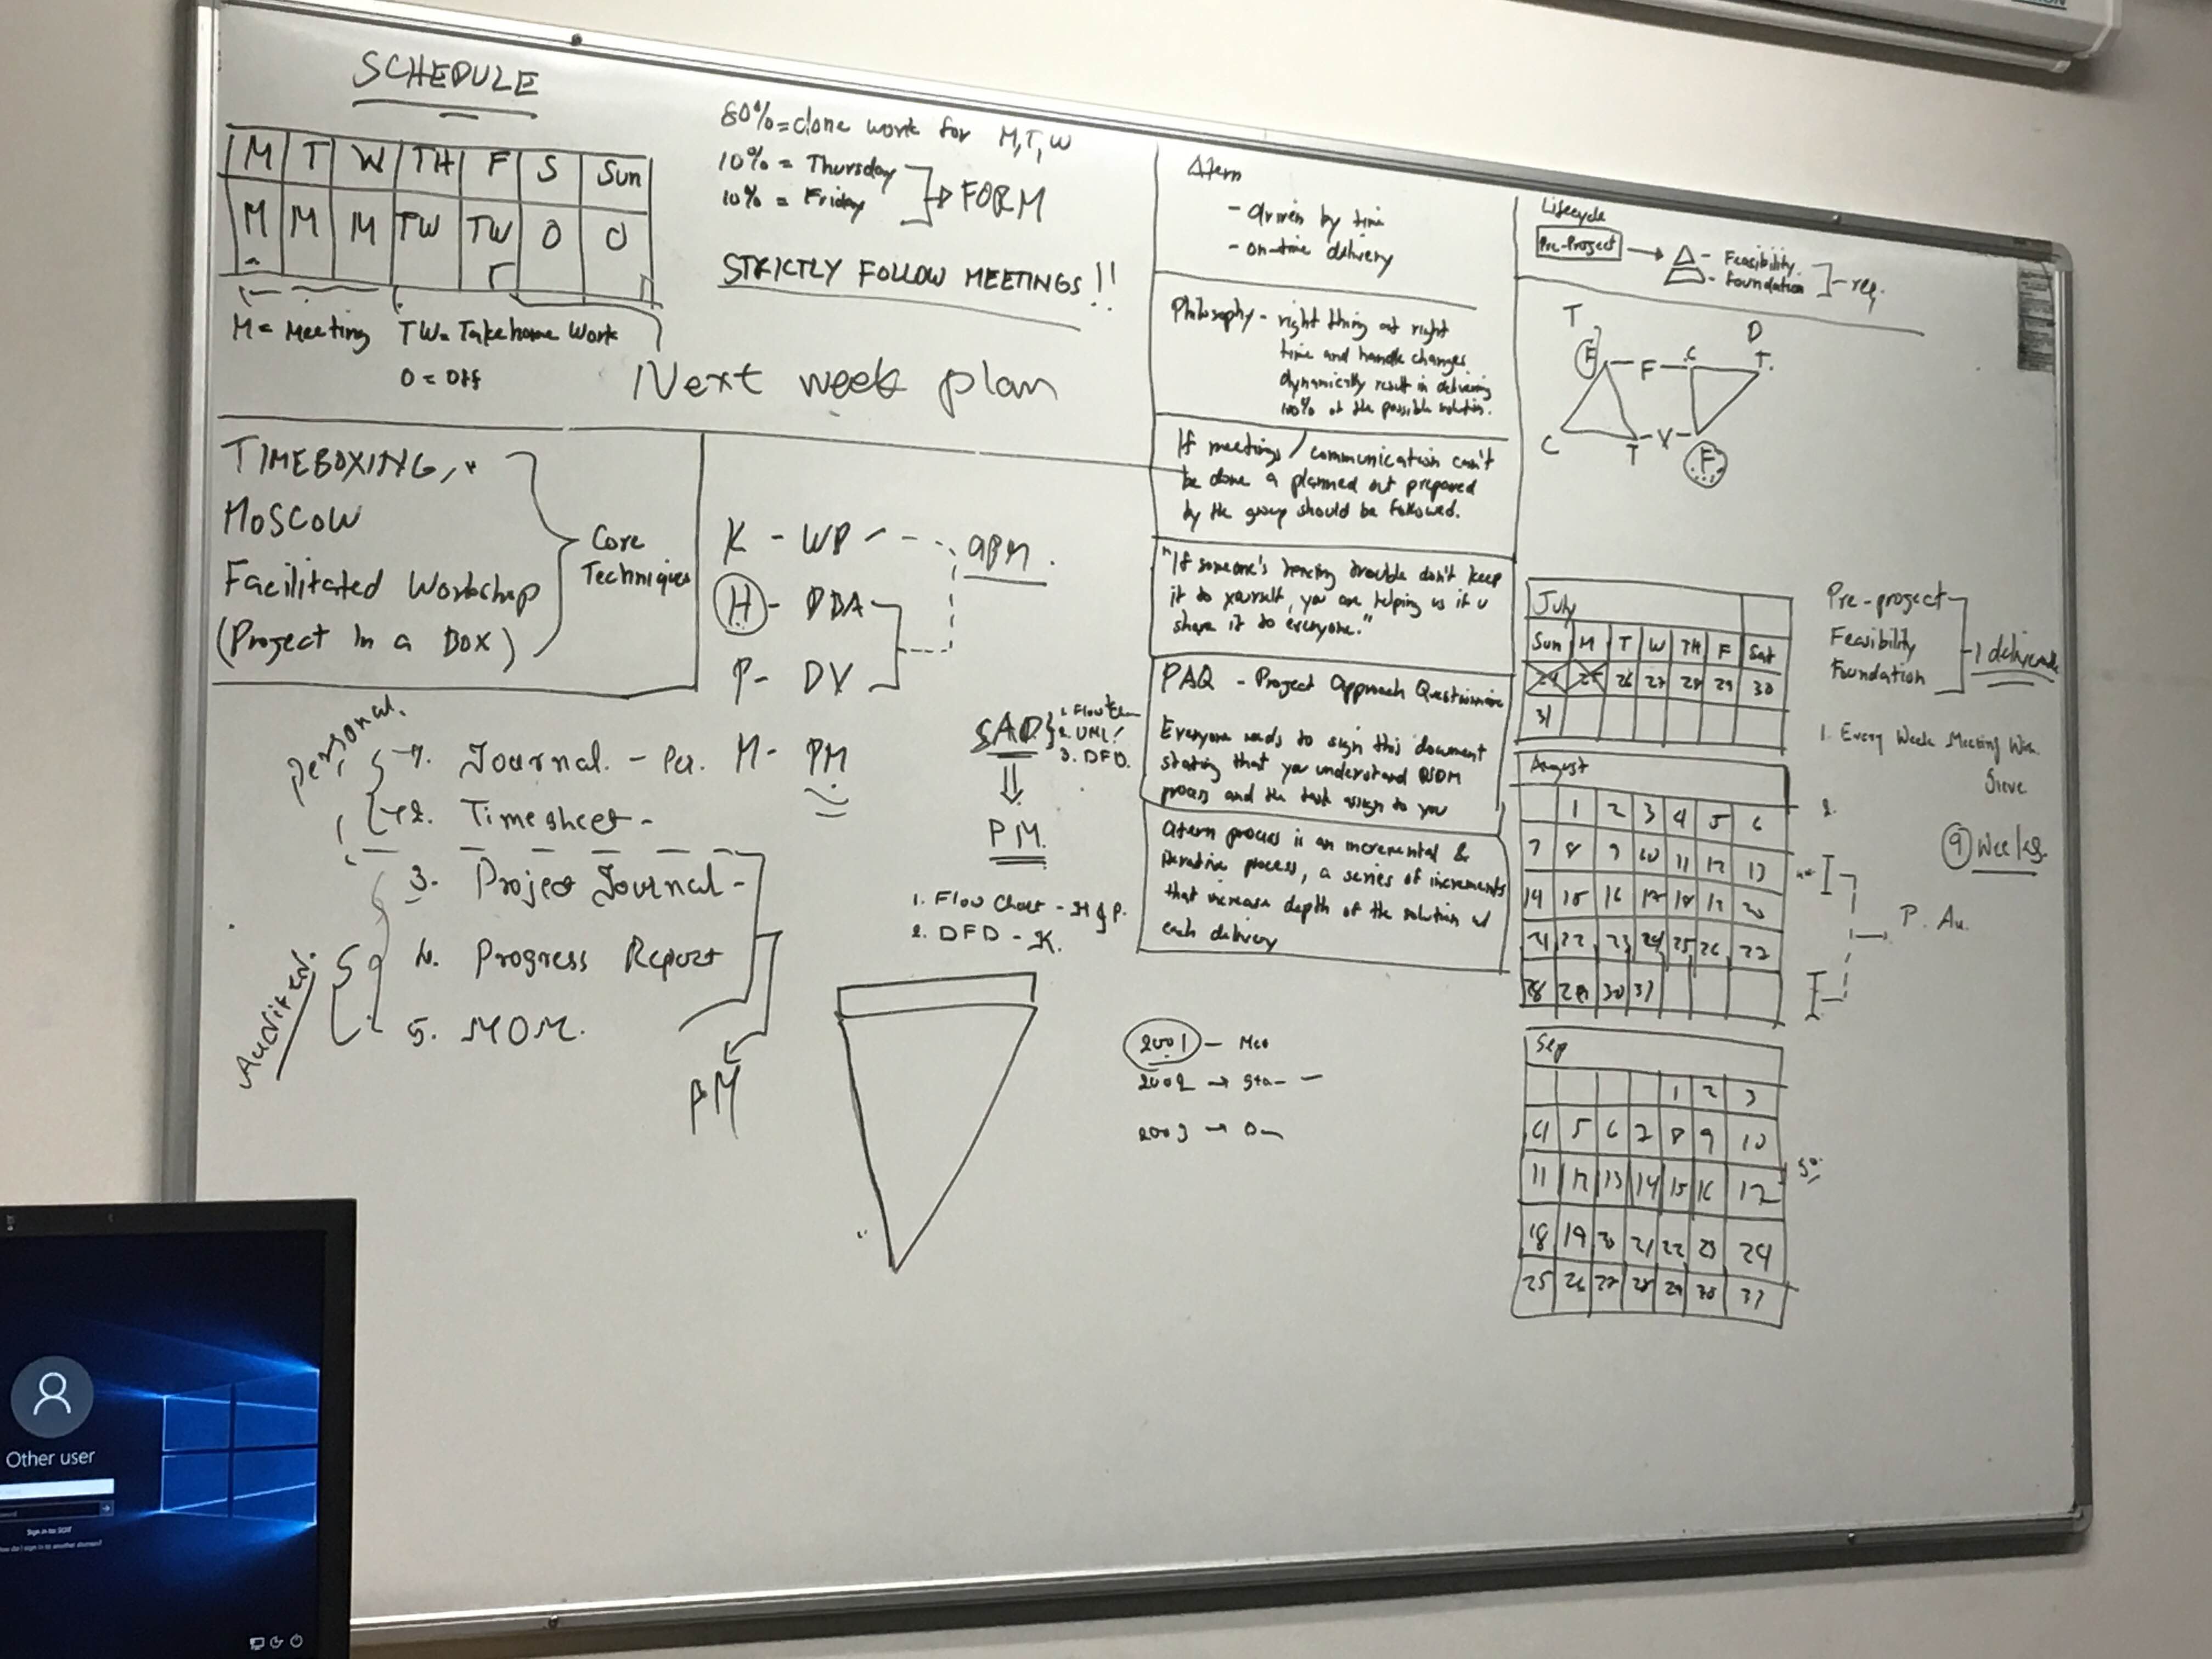 SCHEDULE
M T W TH F S Sun
M M M TW TW O O
M = Meeting TW = Take home Work
O = Off
80% = done work for M, T, W
10% = Thursday
10% = Friday
FORM
STRICTLY FOLLOW MEETINGS!!
Next week plan
TIMEBOXING,
MOSCOW
Facilitated Workshop
(Project In a Box)
Core
Techniques
K - WP
H - DBA
P - DV
M - PM
Personal.
1. Journal. - Per.
2. Timesheet -
3. Project Journal -
4. Progress Report
5. MOM.
Auditer.
PM
SAD
2. UML
3. DFD.
PM.
1. Flow Chart - H & P.
2. DFD - K.
2001 -
2002 →
2003 →
Atern
- driven by time
- on-time delivery
Philosophy - right thing at right
time and handle changes
dynamically result in delivering
100% of the possible solution.
If meetings / communication can't
be done a planned out prepared
by the group should be followed.
"If someone's having trouble don't keep
it to yourself, you are helping us if u
share it to everyone."
PAQ - Project Approach Questionnaire
Everyone needs to sign this document
stating that you understand DSDM
process and the task assign to you
Atern process is an incremental &
iterative process, a series of increments
that increase depth of the solution w/
each delivery
Lifecycle
Pre-Project
- Feasibility
- Foundation
- req.
T D
F - F - C T.
C T - V - F
July
Sun M T W TH F Sat
24 25 26 27 28 29 30
31
August
1 2 3 4 5 6
7 8 9 10 11 12 13
14 15 16 17 18 19 20
21 22 23 24 25 26 27
28 29 30 31
Sep
1 2 3
4 5 6 7 8 9 10
11 12 13 14 15 16 17
18 19 20 21 22 23 24
25 26 27 28 29 30 31
Pre-project
Feasibility
Foundation
1. Every Week Meeting With
2.
9 Weeks
P. Au.
Other user